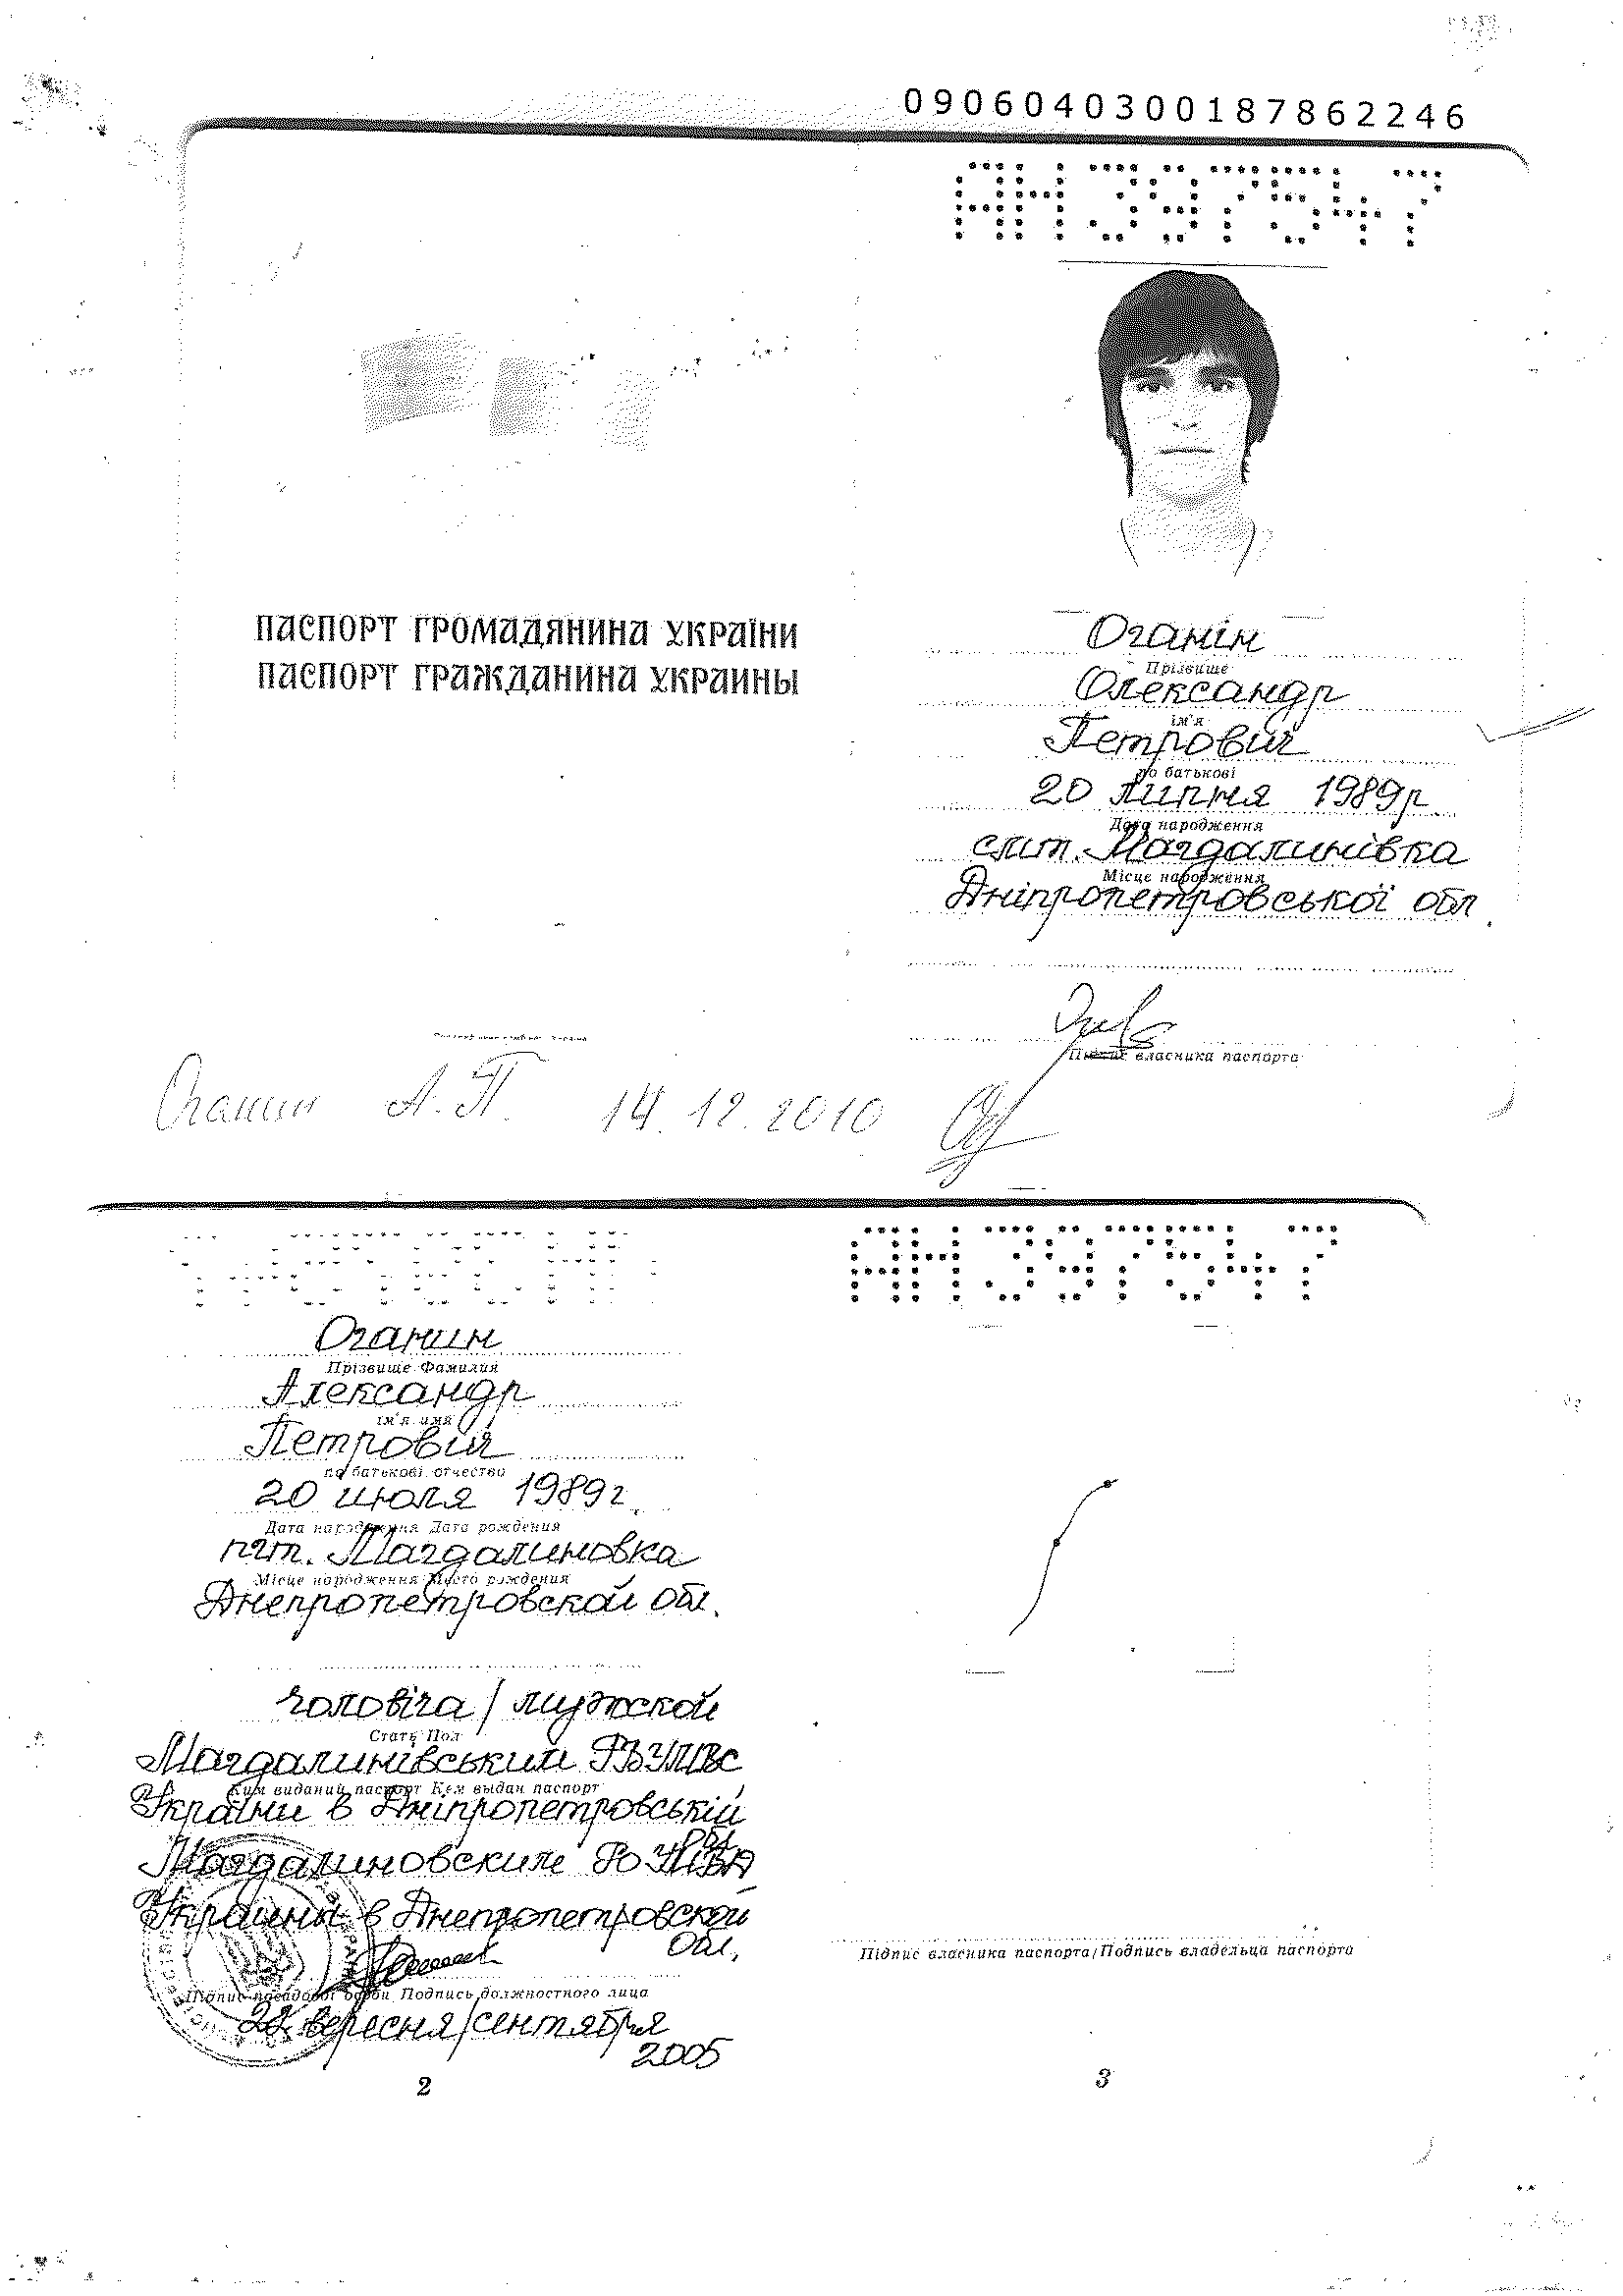 0906040300187862246
АН397547
ПАСПОРТ ГРОМАДЯНИНА УКРАЇНИ
ПАСПОРТ ГРАЖДАНИНА УКРАИНЫ
Оганін
Прізвище
Олександр
ім'я
Петрович
по батькові
20 липня 1989р.
Дата народження
смт. Магдалинівка
Місце народження
Дніпропетровської обл.
Підпис власника паспорта
Оганин А.П. 14.12.2010
АН397547
Оганин
Прізвище Фамилия
Александр
ім'я имя
Петрович
по батькові отчество
20 июля 1989г.
Дата народження Дата рождения
пгт. Магдалиновка
Місце народження Место рождения
Днепропетровской обл.
чоловіча/мужской
Стать Пол
Магдалинівський РВ УМВС
Ким виданий паспорт Кем выдан паспорт
України в Дніпропетровській
обл.
Магдалиновским РО УМВД
Украины в Днепропетровской
обл.
Підпис посадової особи Подпись должностного лица
вересня/сентября
2005
Підпис власника паспорта/Подпись владельца паспорта
2
3